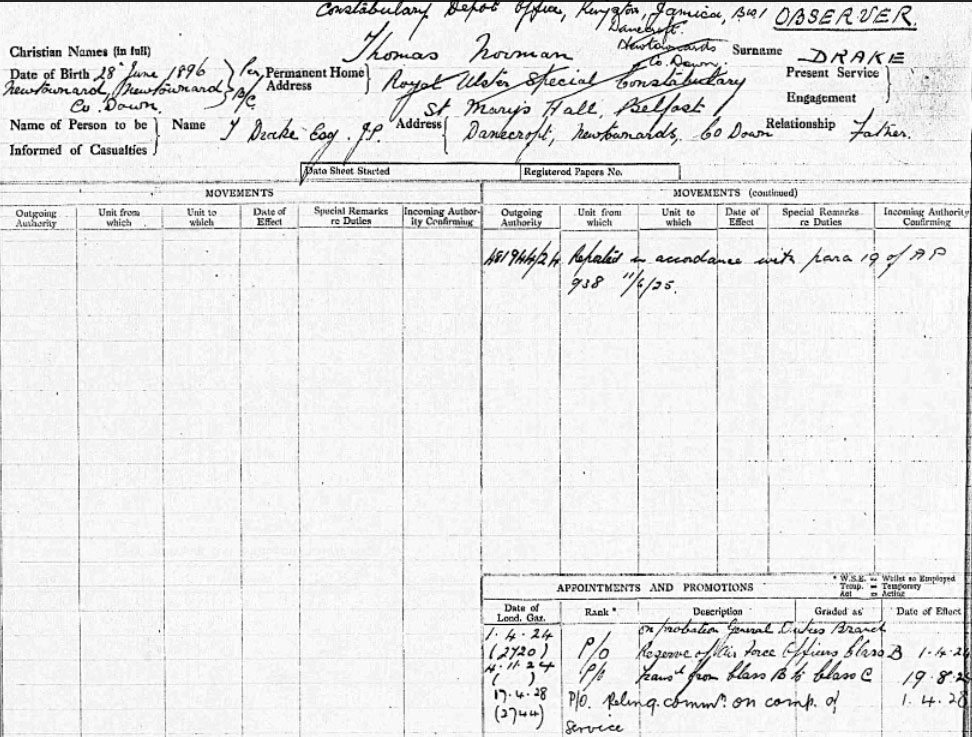 Constabulary Depot Office, Kingston, Jamaica, BWI OBSERVER.
Danecroft
Newtownards
Co. Down.
Christian Names (in full) Thomas Norman Surname DRAKE
Date of Birth 28 June 1896 Per B/C Permanent Home Address Royal Ulster Special Constabulary Present Service
Newtownard, Newtownard
Co. Down Engagement
St Mary's Hall, Belfast
Name of Person to be Informed of Casualties Name T Drake Esq. J.P. Address Danecroft, Newtownards, Co Down Relationship Father.
Date Sheet Started Registered Papers No.
MOVEMENTS MOVEMENTS (continued)
Outgoing Authority Unit from which Unit to which Date of Effect Special Remarks re Duties Incoming Authority Confirming Outgoing Authority Unit from which Unit to which Date of Effect Special Remarks re Duties Incoming Authority Confirming
481944/24 in accordance with para 19 of AP
938 11/6/25.
* W.S.E. = Whilst so Employed
Temp. = Temporary
Act = Acting
APPOINTMENTS AND PROMOTIONS
Date of Lond. Gaz. Rank * Description Graded as Date of Effect
1.4.24 on probation General Duties Branch
(2720) P/O Reserve of Air Force Officers Class B 1.4.24
4.11.24 P/O Trans from Class B to Class C 19.8.
( )
17.4.28 P/O. Relinq. comm. on comp. of 1.4.28
(2744) service